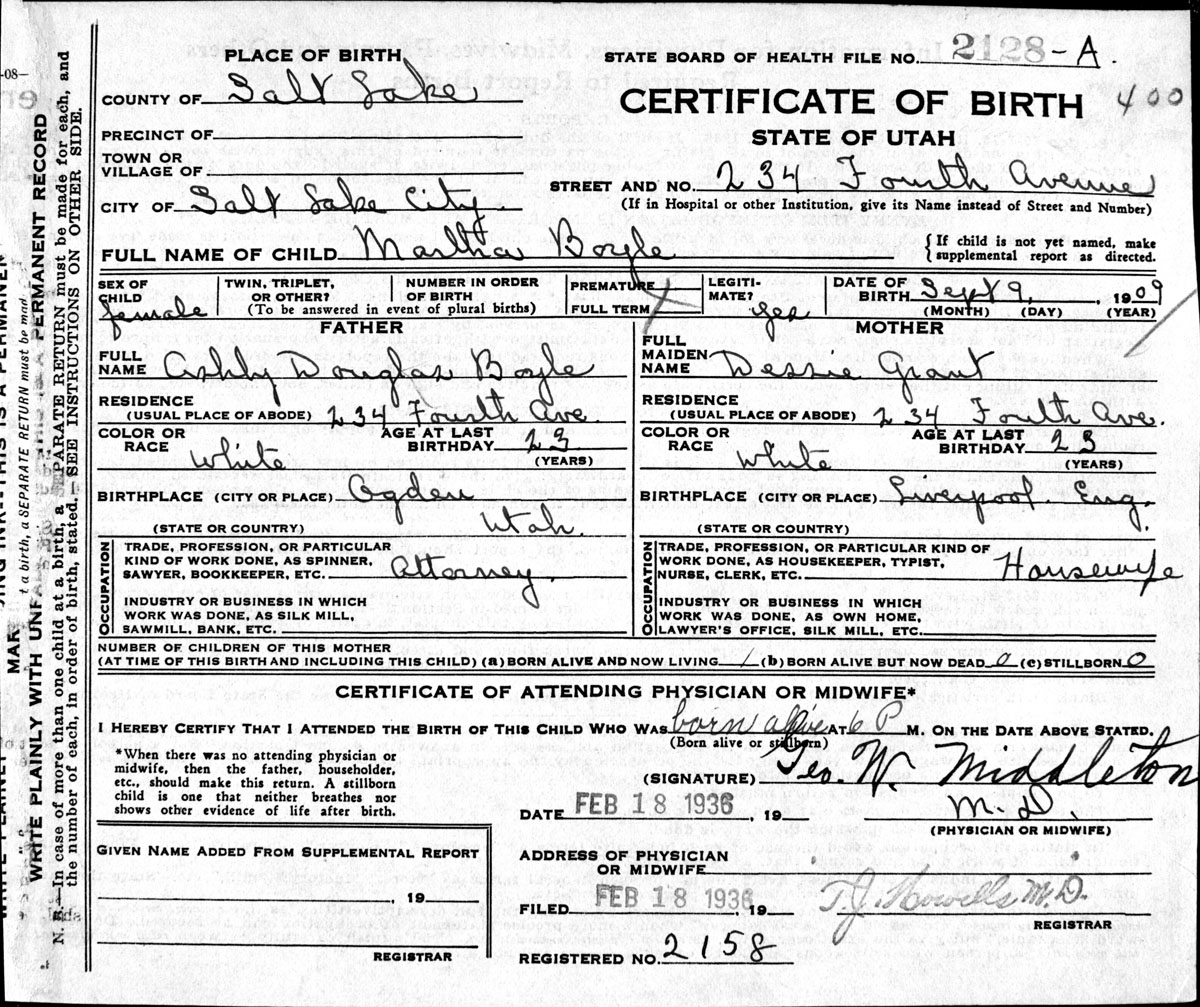 PLACE OF BIRTH
STATE BOARD OF HEALTH FILE NO. 2128-A.
COUNTY OF Salt Lake
CERTIFICATE OF BIRTH 400
PRECINCT OF
STATE OF UTAH
TOWN OR
VILLAGE OF
STREET AND NO. 234 Fourth Avenue
CITY OF Salt Lake City
(If in Hospital or other Institution, give its Name instead of Street and Number)
FULL NAME OF CHILD Martha Boyle
{If child is not yet named, make
supplemental report as directed.
SEX OF
CHILD
female
TWIN, TRIPLET,
OR OTHER?
NUMBER IN ORDER
OF BIRTH
(To be answered in event of plural births)
PREMATURE
FULL TERM X
LEGITI-
MATE? yes
DATE OF
BIRTH Sept 9, 1909
(MONTH) (DAY) (YEAR)
FATHER
FULL
NAME Ashby Douglas Boyle
RESIDENCE
(USUAL PLACE OF ABODE) 234 Fourth Ave.
COLOR OR
RACE White
AGE AT LAST
BIRTHDAY 23
(YEARS)
BIRTHPLACE (CITY OR PLACE) Ogden
Utah.
(STATE OR COUNTRY)
OCCUPATION
TRADE, PROFESSION, OR PARTICULAR
KIND OF WORK DONE, AS SPINNER,
SAWYER, BOOKKEEPER, ETC. Attorney.
INDUSTRY OR BUSINESS IN WHICH
WORK WAS DONE, AS SILK MILL,
SAWMILL, BANK, ETC.
MOTHER
FULL
MAIDEN
NAME Dessie Grant
RESIDENCE
(USUAL PLACE OF ABODE) 234 Fouth Ave.
COLOR OR
RACE White
AGE AT LAST
BIRTHDAY 23
(YEARS)
BIRTHPLACE (CITY OR PLACE) Liverpool. Eng.
(STATE OR COUNTRY)
OCCUPATION
TRADE, PROFESSION, OR PARTICULAR KIND OF
WORK DONE, AS HOUSEKEEPER, TYPIST,
NURSE, CLERK, ETC. Housewife
INDUSTRY OR BUSINESS IN WHICH
WORK WAS DONE, AS OWN HOME,
LAWYER'S OFFICE, SILK MILL, ETC.
NUMBER OF CHILDREN OF THIS MOTHER
(AT TIME OF THIS BIRTH AND INCLUDING THIS CHILD) (a) BORN ALIVE AND NOW LIVING 1 (b) BORN ALIVE BUT NOW DEAD 0 (c) STILLBORN 0
CERTIFICATE OF ATTENDING PHYSICIAN OR MIDWIFE*
I HEREBY CERTIFY THAT I ATTENDED THE BIRTH OF THIS CHILD WHO WAS born alive AT 6 P M. ON THE DATE ABOVE STATED.
(Born alive or stillborn)
*When there was no attending physician or
midwife, then the father, householder,
etc., should make this return. A stillborn
child is one that neither breathes nor
shows other evidence of life after birth.
(SIGNATURE) Geo. W. Middleton
M.D.
DATE FEB 18 1936, 19
(PHYSICIAN OR MIDWIFE)
GIVEN NAME ADDED FROM SUPPLEMENTAL REPORT
, 19
REGISTRAR
ADDRESS OF PHYSICIAN
OR MIDWIFE
FILED FEB 18 1936, 19 T.J. Howells M.D.
REGISTRAR
REGISTERED NO. 2158
WRITE PLAINLY WITH UNFADING INK—THIS IS A PERMANENT RECORD
N. B.—In case of more than one child at a birth, a SEPARATE RETURN must be made for each, and
the number of each, in order of birth, stated.—SEE INSTRUCTIONS ON OTHER SIDE.